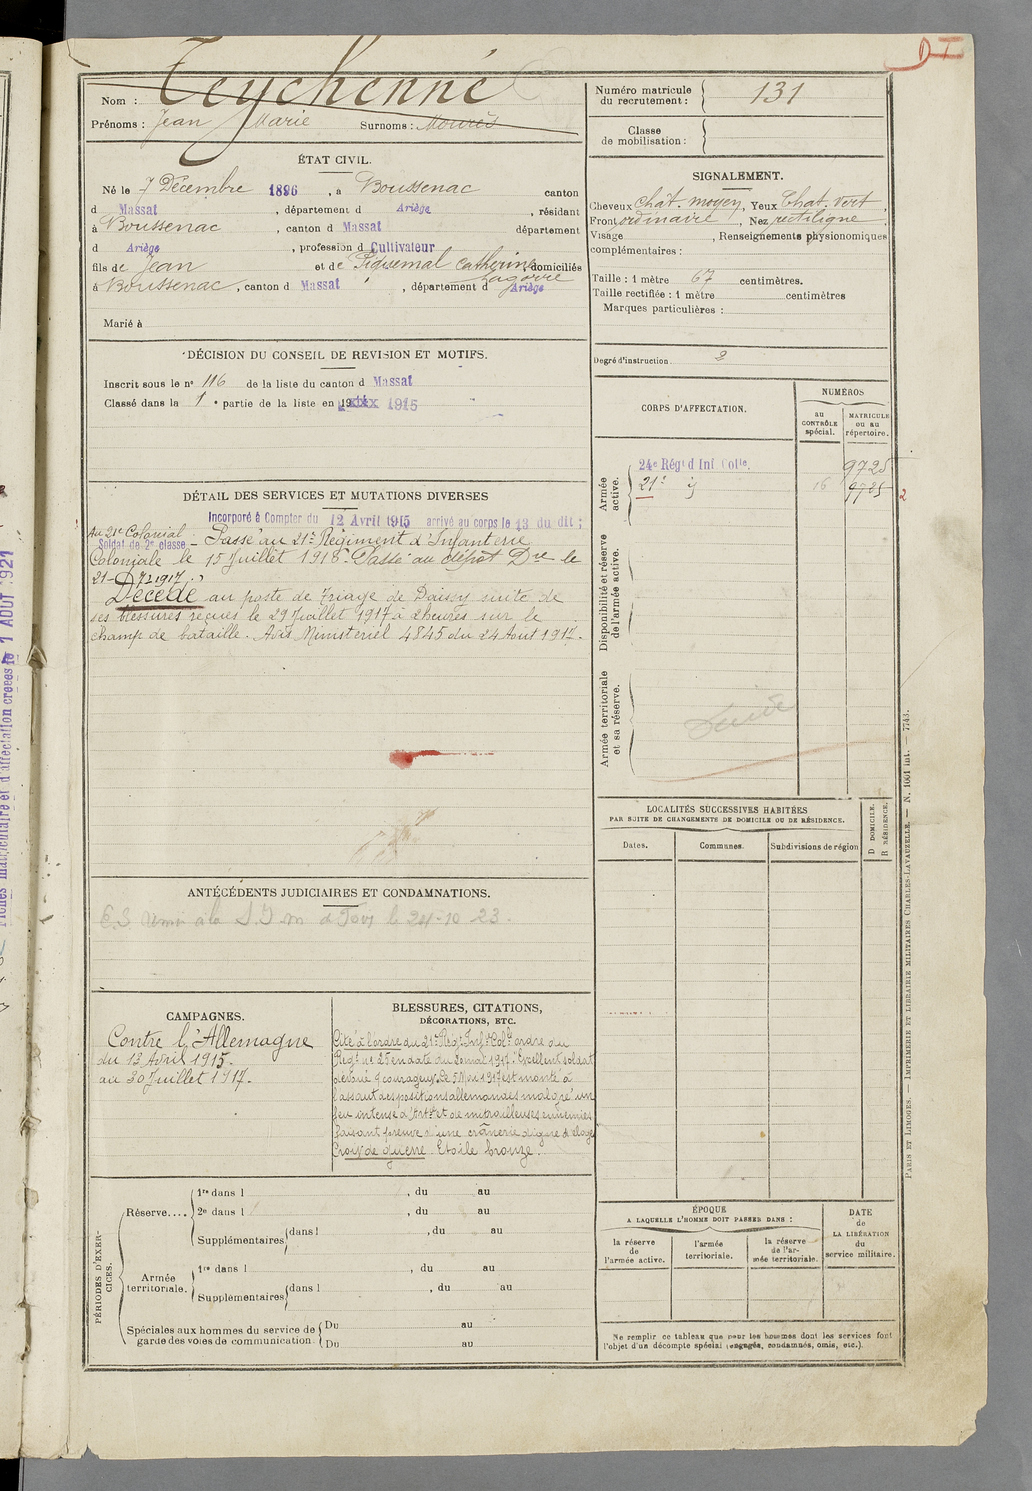 DI
Nom : Teychenné
Prénoms : Jean Marie Surnoms : Mourès
Numéro matricule du recrutement : 131
Classe de mobilisation :
ÉTAT CIVIL.
Né le 7 Décembre 1896, à Boussenac canton
d Massat, département d Ariège, résidant
à Boussenac, canton d Massat département
d Ariège, profession d Cultivateur
fils de Jean et de Piquemal Catherine, domiciliés
Lagorre
à Boussenac, canton d Massat, département d Ariège
Marié à
SIGNALEMENT.
Cheveux chât. moyen, Yeux Chat. vert
Front ordinaire, Nez rectiligne
Visage , Renseignements physionomiques
complémentaires :
Taille : 1 mètre 67 centimètres.
Taille rectifiée : 1 mètre centimètres
Marques particulières :
Degré d'instruction. 2
DÉCISION DU CONSEIL DE REVISION ET MOTIFS.
Inscrit sous le nº 116 de la liste du canton d Massat
Classé dans la 1e partie de la liste en 1915
CORPS D'AFFECTATION.
NUMÉROS
au CONTRÔLE spécial.
MATRICULE ou au répertoire.
Armée active.
24e Régt d Inf Colle. 9725
21e 16 9725 2
Disponibilité et réserve de l'armée active.
Armée territoriale et sa réserve.
DÉTAIL DES SERVICES ET MUTATIONS DIVERSES
Incorporé à Compter du 12 Avril 1915 arrivé au corps le 13 du dit ;
Au 21e Colonial
Soldat de 2e classe - Passé au 21e Régiment d'Infanterie
Coloniale le 15 Juillet 1916. Passé au dépôt Dre le
21-7-1917.
Décédé au poste de triage de Paissy suite de
ses blessures reçues le 29 Juillet 1917 à 2 heures sur le
champ de bataille. Avis Ministériel 4845 du 24 Août 1917.
LOCALITÉS SUCCESSIVES HABITÉES
PAR SUITE DE CHANGEMENTS DE DOMICILE OU DE RÉSIDENCE.
Dates. Communes. Subdivisions de région
D DOMICILE.
R RÉSIDENCE.
ANTÉCÉDENTS JUDICIAIRES ET CONDAMNATIONS.
le 24-10 23.
CAMPAGNES.
Contre l'Allemagne
du 13 Avril 1915.
au 30 Juillet 1917.
BLESSURES, CITATIONS,
DÉCORATIONS, ETC.
Cité à l'ordre du 21e Régt Infie Colle ordre du
Régt nº 25 en date du 20 mai 1917. Excellent soldat
dévoué & courageux. Le 5 Mai 1917 est monté à
l'assaut des positions allemandes malgré un
feu intense d'Artie et de mitrailleuses ennemies
faisant preuve d'une crânerie digne d'éloges
Croix de guerre Etoile bronze.
PÉRIODES D'EXERCICES.
Réserve....
1re dans l , du au
2e dans l , du au
Supplémentaires dans l , du au
Armée territoriale.
1re dans l , du au
Supplémentaires dans l , du au
Spéciales aux hommes du service de garde des voies de communication.
Du au
Du au
ÉPOQUE
A LAQUELLE L'HOMME DOIT PASSER DANS :
la réserve de l'armée active.
l'armée territoriale.
la réserve de l'armée territoriale.
DATE de LA LIBÉRATION du service militaire.
Ne remplir ce tableau que pour les hommes dont les services font
l'objet d'un décompte spécial (engagés, condamnés, omis, etc.).
PARIS ET LIMOGES. — IMPRIMERIE ET LIBRAIRIE MILITAIRES CHARLES-LAVAUZELLE. — N. 1001 int. — 7743.